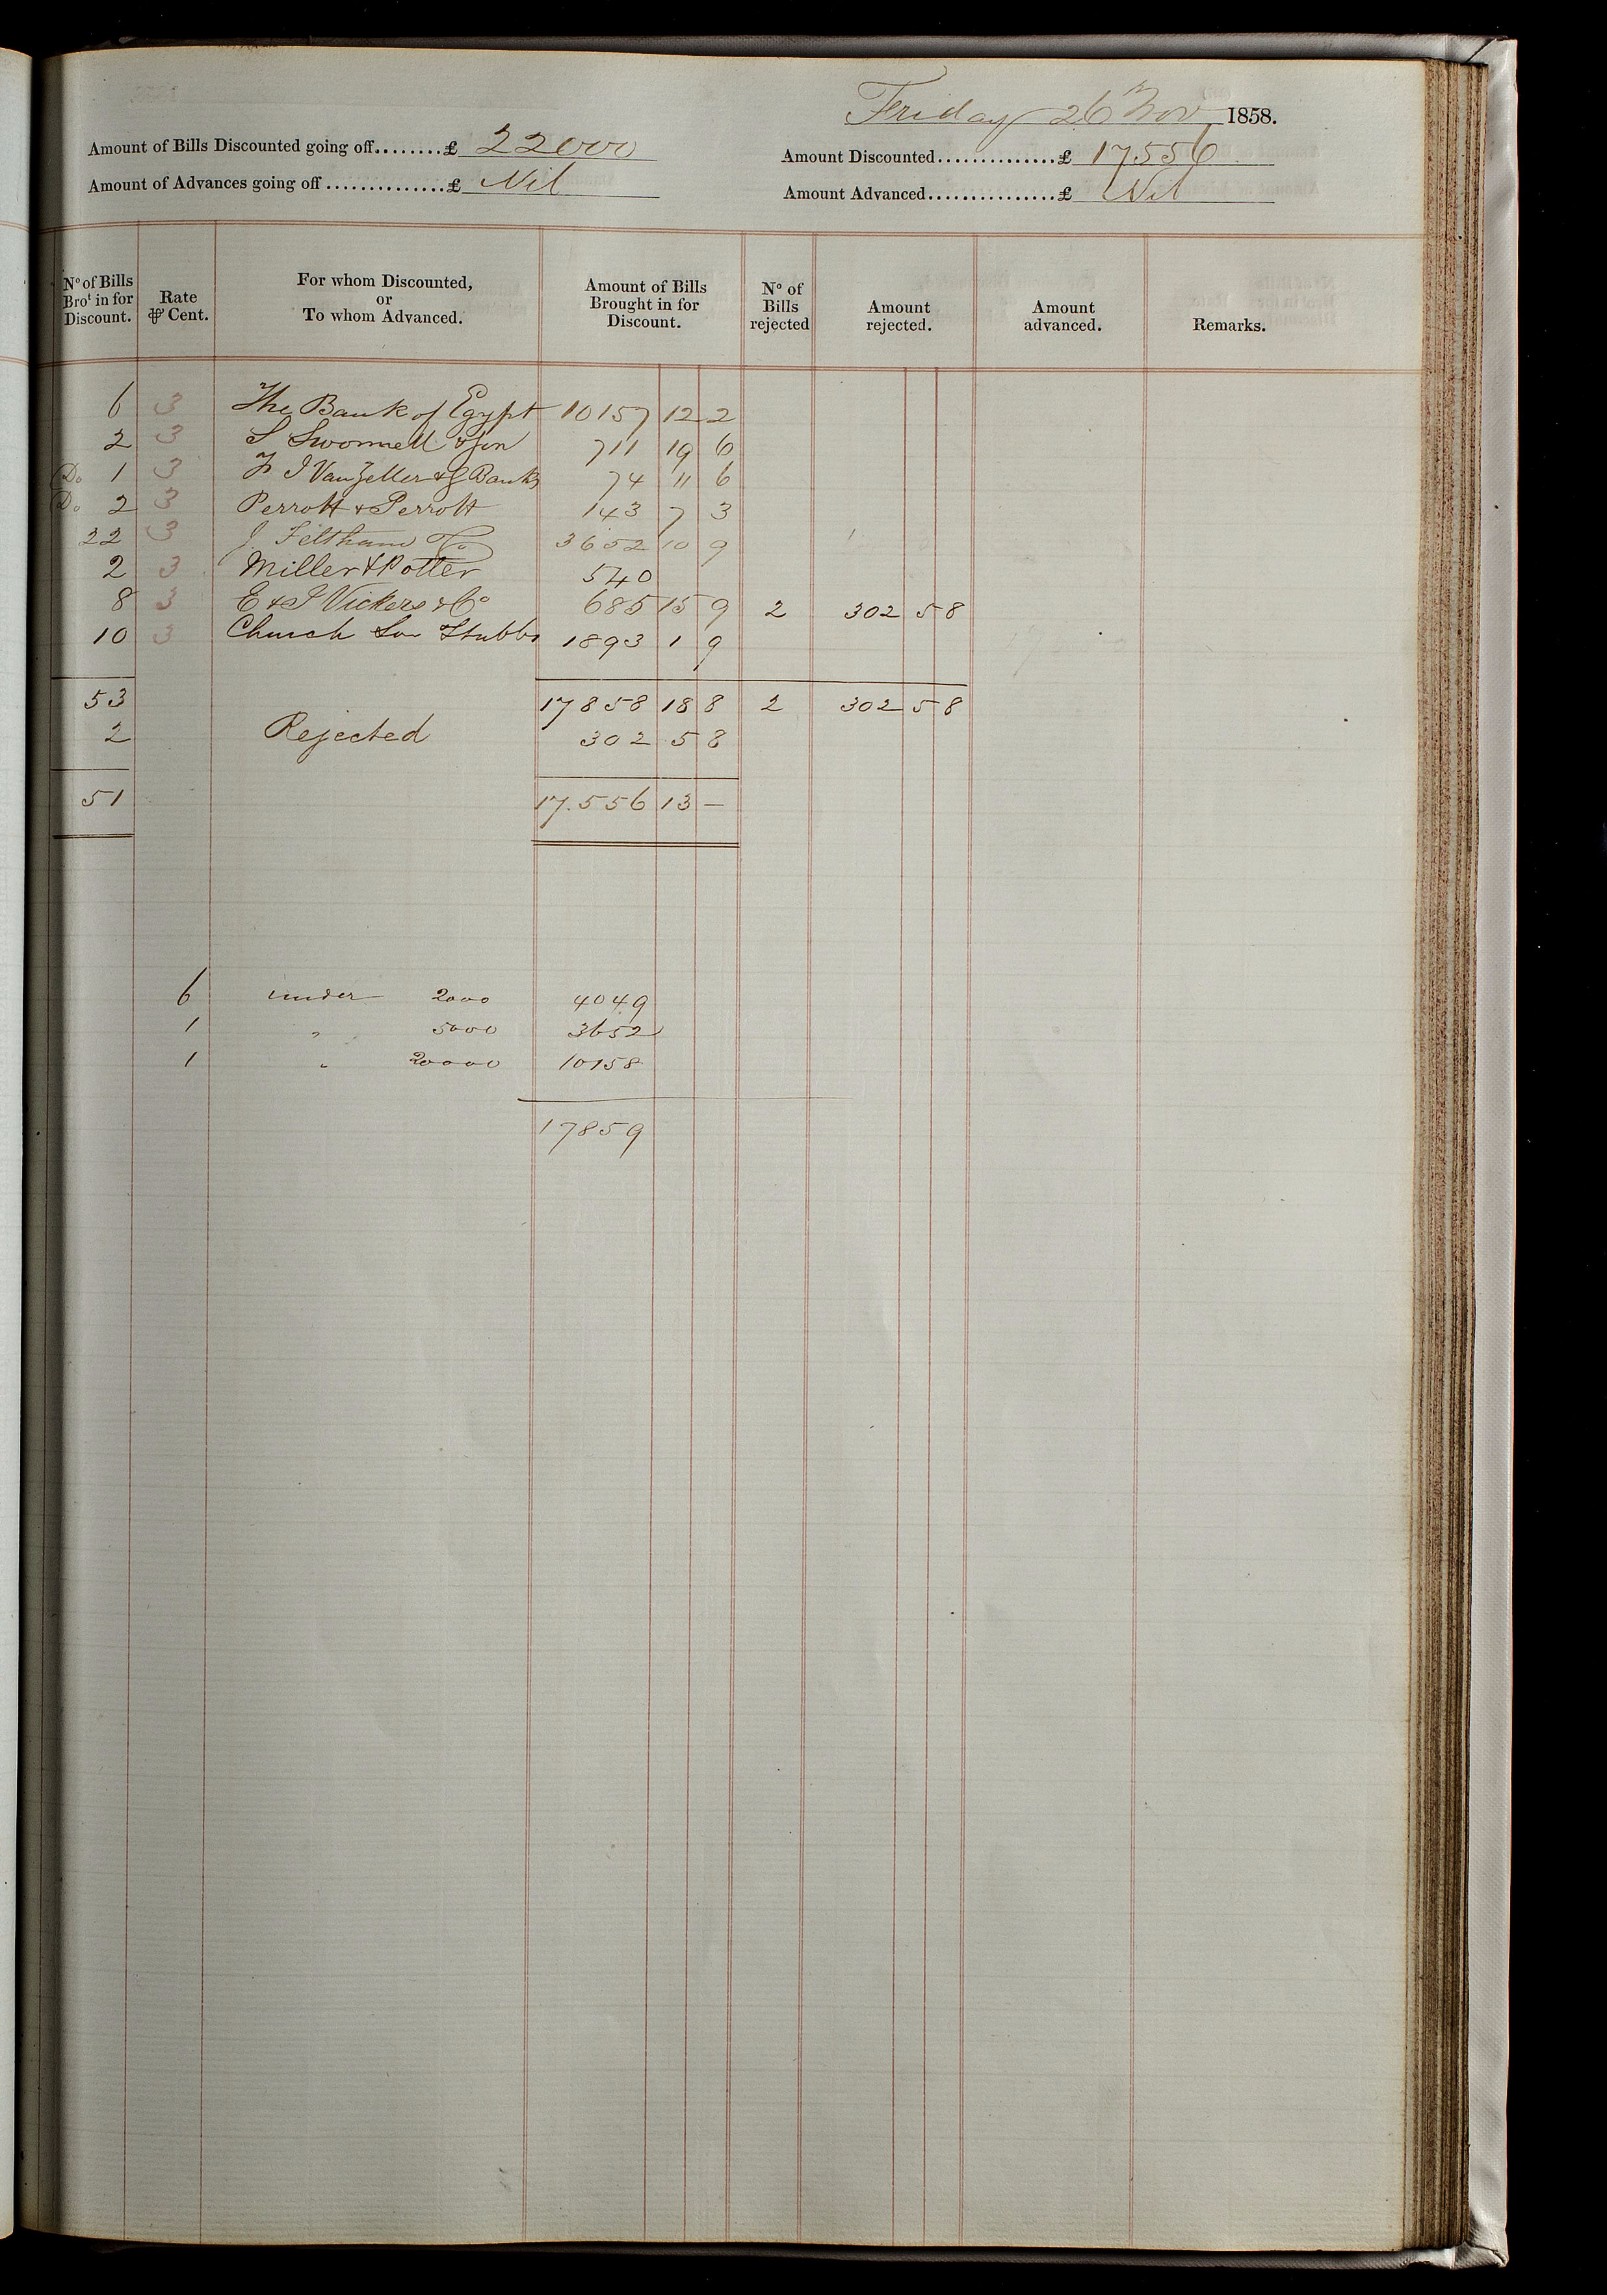 Friday 26 Nov 1858.
Amount of Bills Discounted going off........£ 22000
Amount Discounted..............£ 17.556
Amount of Advances going off...............£ Nil
Amount Advanced...............£ Nil
No of Bills Brot in for Discount.
Rate ⅌ Cent.
For whom Discounted, or To whom Advanced.
Amount of Bills Brought in for Discount.
No of Bills rejected
Amount rejected.
Amount advanced.
Remarks.
6 3 The Bank of Egypt 10157 12 2
2 3 S Swonnell & Son 711 19 6
Do 1 3 F I VanZeller & G Banks 74 11 6
Do 2 3 Perrott & Perrott 143 7 3
22 3 J Feltham & Co 3652 10 9
2 3 Miller & Potter 540
8 3 E & J Vickers & Co 685 15 9 2 302 5 8
10 3 Church Stubbs 1893 1 9
53 17858 18 8 2 302 5 8
2 Rejected 302 5 8
51 17.556 13 —
6 under 2000 4049
1 " 5000 3652
1 " 20000 10158
17859